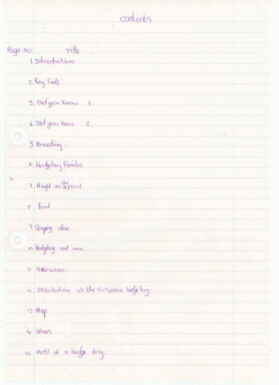 contents
Page no: title
1. Introduction
2. Key Facts
3. Did you Know 1.
4. Did you Know 2.
5. Breeding
6. Hedgehog Families
7. Height and Speed
8. Food
9. Staying alive
10. Hedgehog and man
11.
12. Distribution of the European hedgehog
13. Map
14.
15. of a hedge hog.